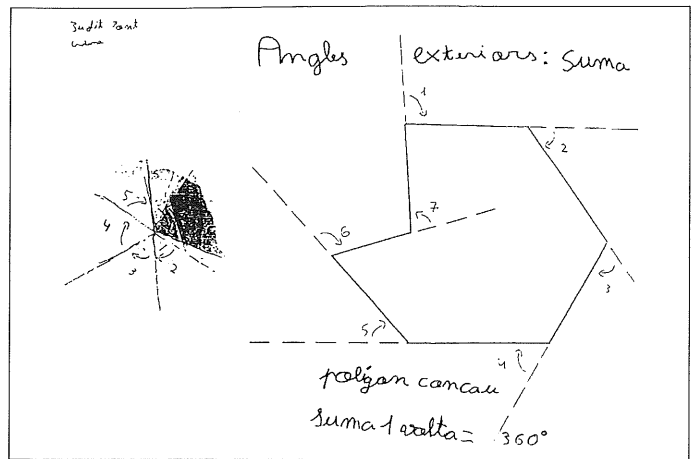 Judit Font
Angles exteriors: Suma
1
2
3
4
5
6
7
5
4
3
2
polígon concau
suma 1 volta = 360°